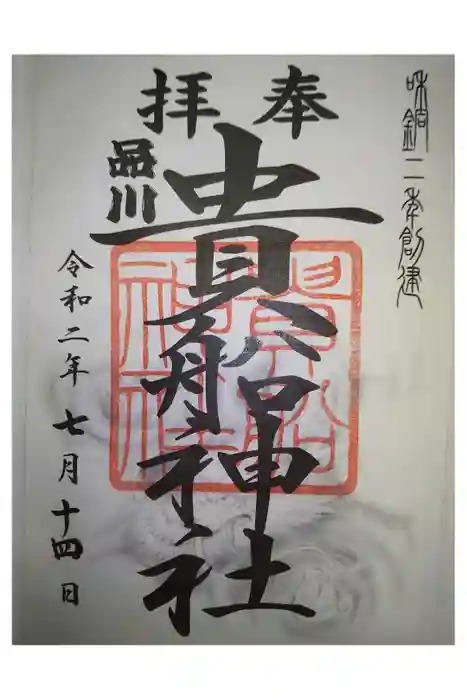 和銅二年創建
奉拝
品川
貴船神社
貴船
神社
令和二年七月十四日